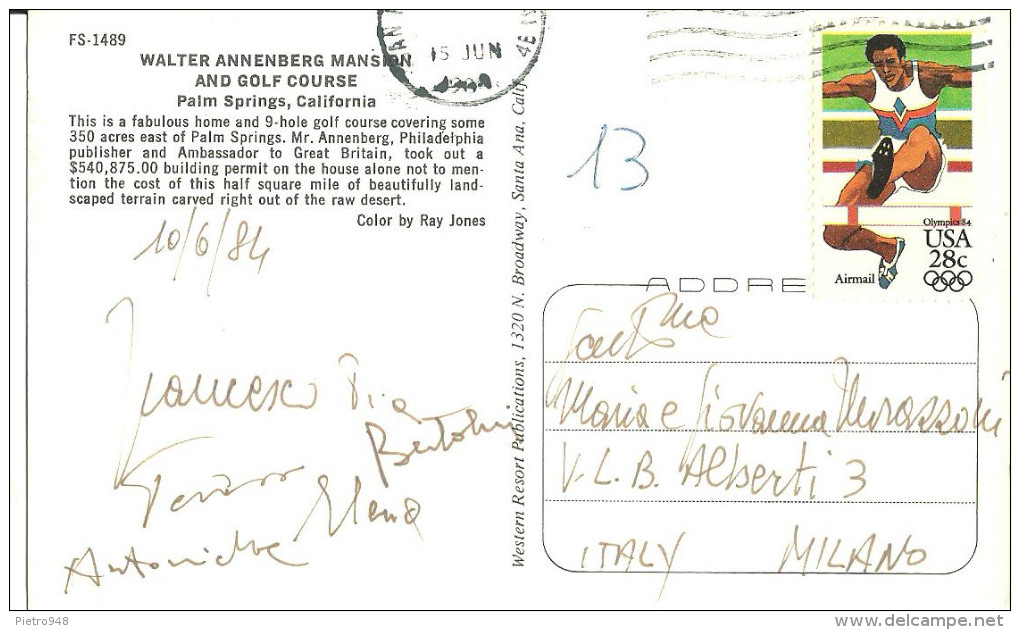 FS-1489
WALTER ANNENBERG MANSION
AND GOLF COURSE
Palm Springs, California
This is a fabulous home and 9-hole golf course covering some
350 acres east of Palm Springs. Mr. Annenberg, Philadelphia
publisher and Ambassador to Great Britain, took out a
$540,875.00 building permit on the house alone not to men-
tion the cost of this half square mile of beautifully land-
scaped terrain carved right out of the raw desert.
Color by Ray Jones
10/6/84
Francesco Pia
Bertolini
Elena
Western Resort Publications, 1320 N. Broadway, Santa Ana, Calif.
15 JUN
13
Olympics 84
USA
28c
Airmail
ADDRE
Maria e Giovanna
V. L. B. Alberti 3
ITALY MILANO
Pietro948